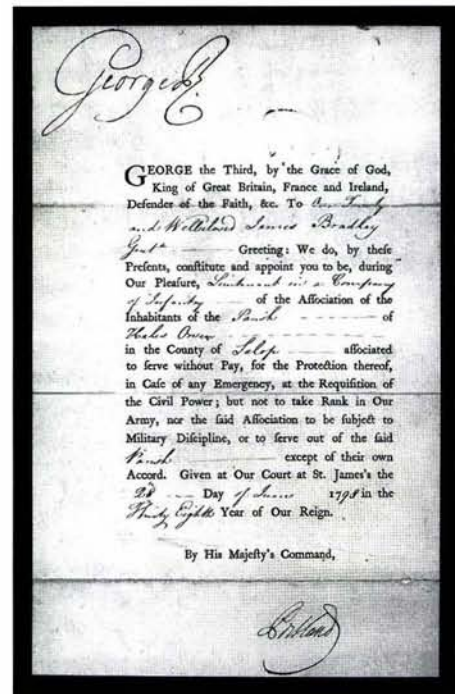 George R
GEORGE the Third, by the Grace of God,
King of Great Britain, France and Ireland,
Defender of the Faith, &c. To Our Trusty
and Welbeloved James Bradley
Gent. Greeting: We do, by theſe
Preſents, conſtitute and appoint you to be, during
Our Pleaſure, Lieutenant in a Company
of Infantry of the Aſſociation of the
Inhabitants of the Parish of
Hales Owen
in the County of Salop aſſociated
to ſerve without Pay, for the Protection thereof,
in Caſe of any Emergency, at the Requiſition of
the Civil Power; but not to take Rank in Our
Army, nor the ſaid Aſſociation to be ſubject to
Military Diſcipline, or to ſerve out of the ſaid
Parish except of their own
Accord. Given at Our Court at St. James's the
28 Day of June 1798 in the
Thirty Eighth Year of Our Reign.
By His Majeſty's Command,
Portland